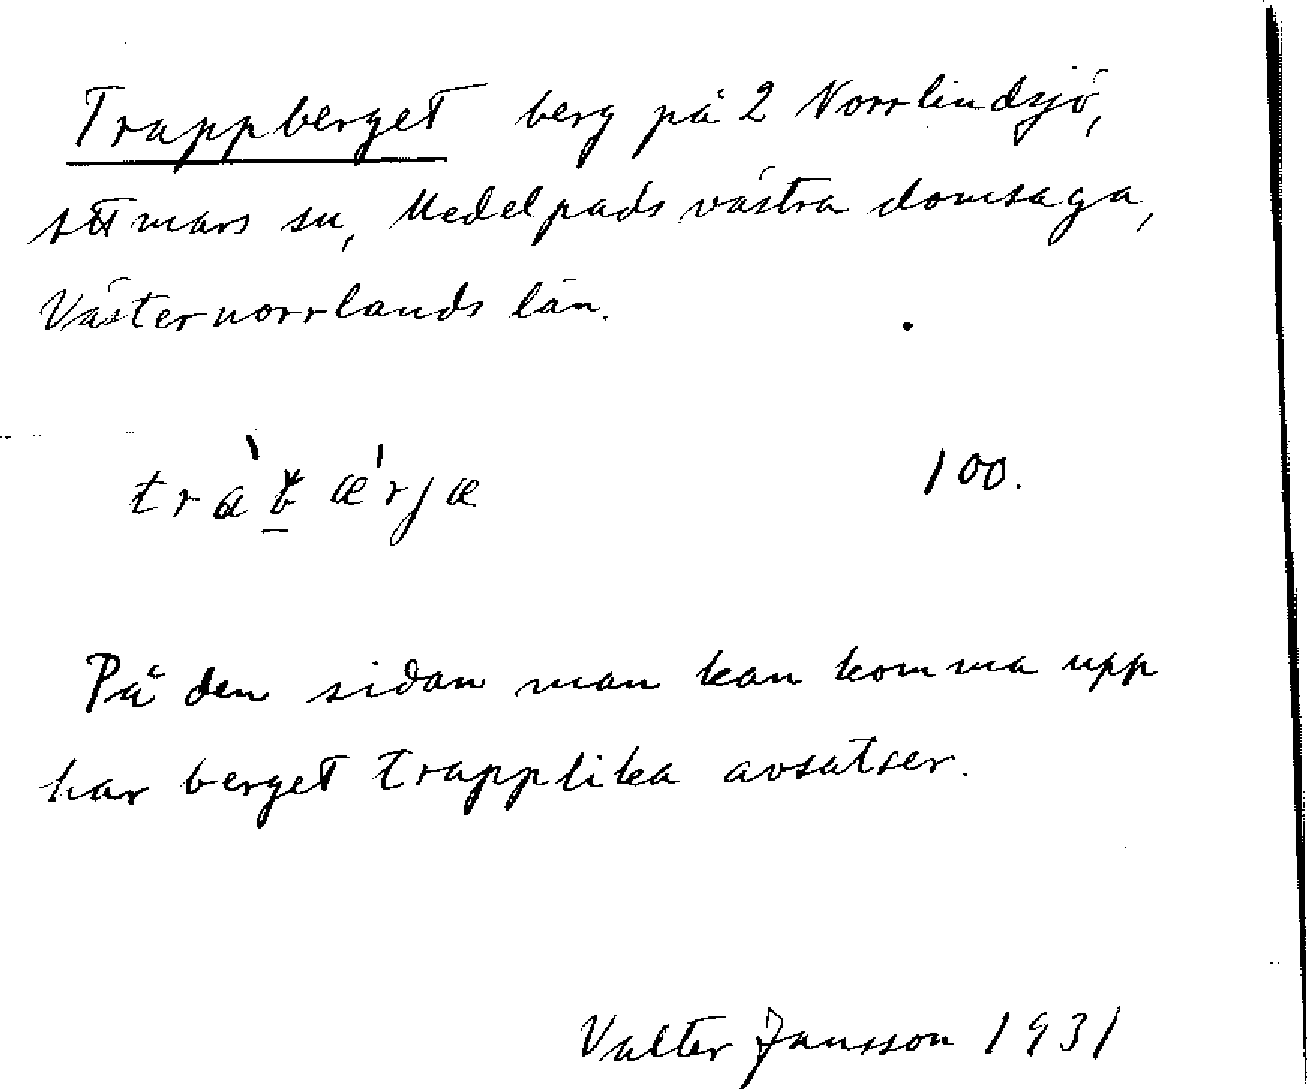 Trappberget berg på 2 Norrlindsjö,
Attmars sn, Medelpads västra domsaga,
Västernorrlands län.
100.
På den sidan man kan komma upp
har berget trapplika avsatser.
Valter Jansson 1931